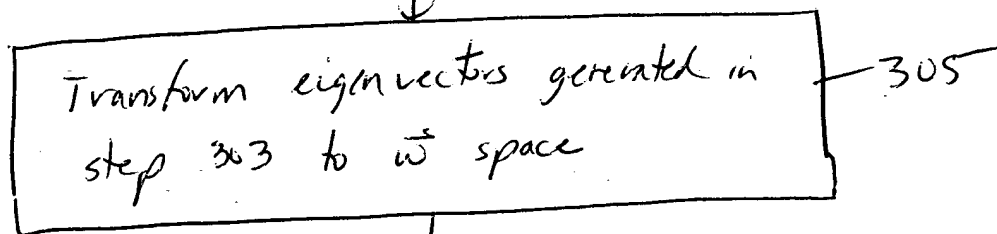 Transform eigenvectors generated in
step 303 to w⃗ space
305